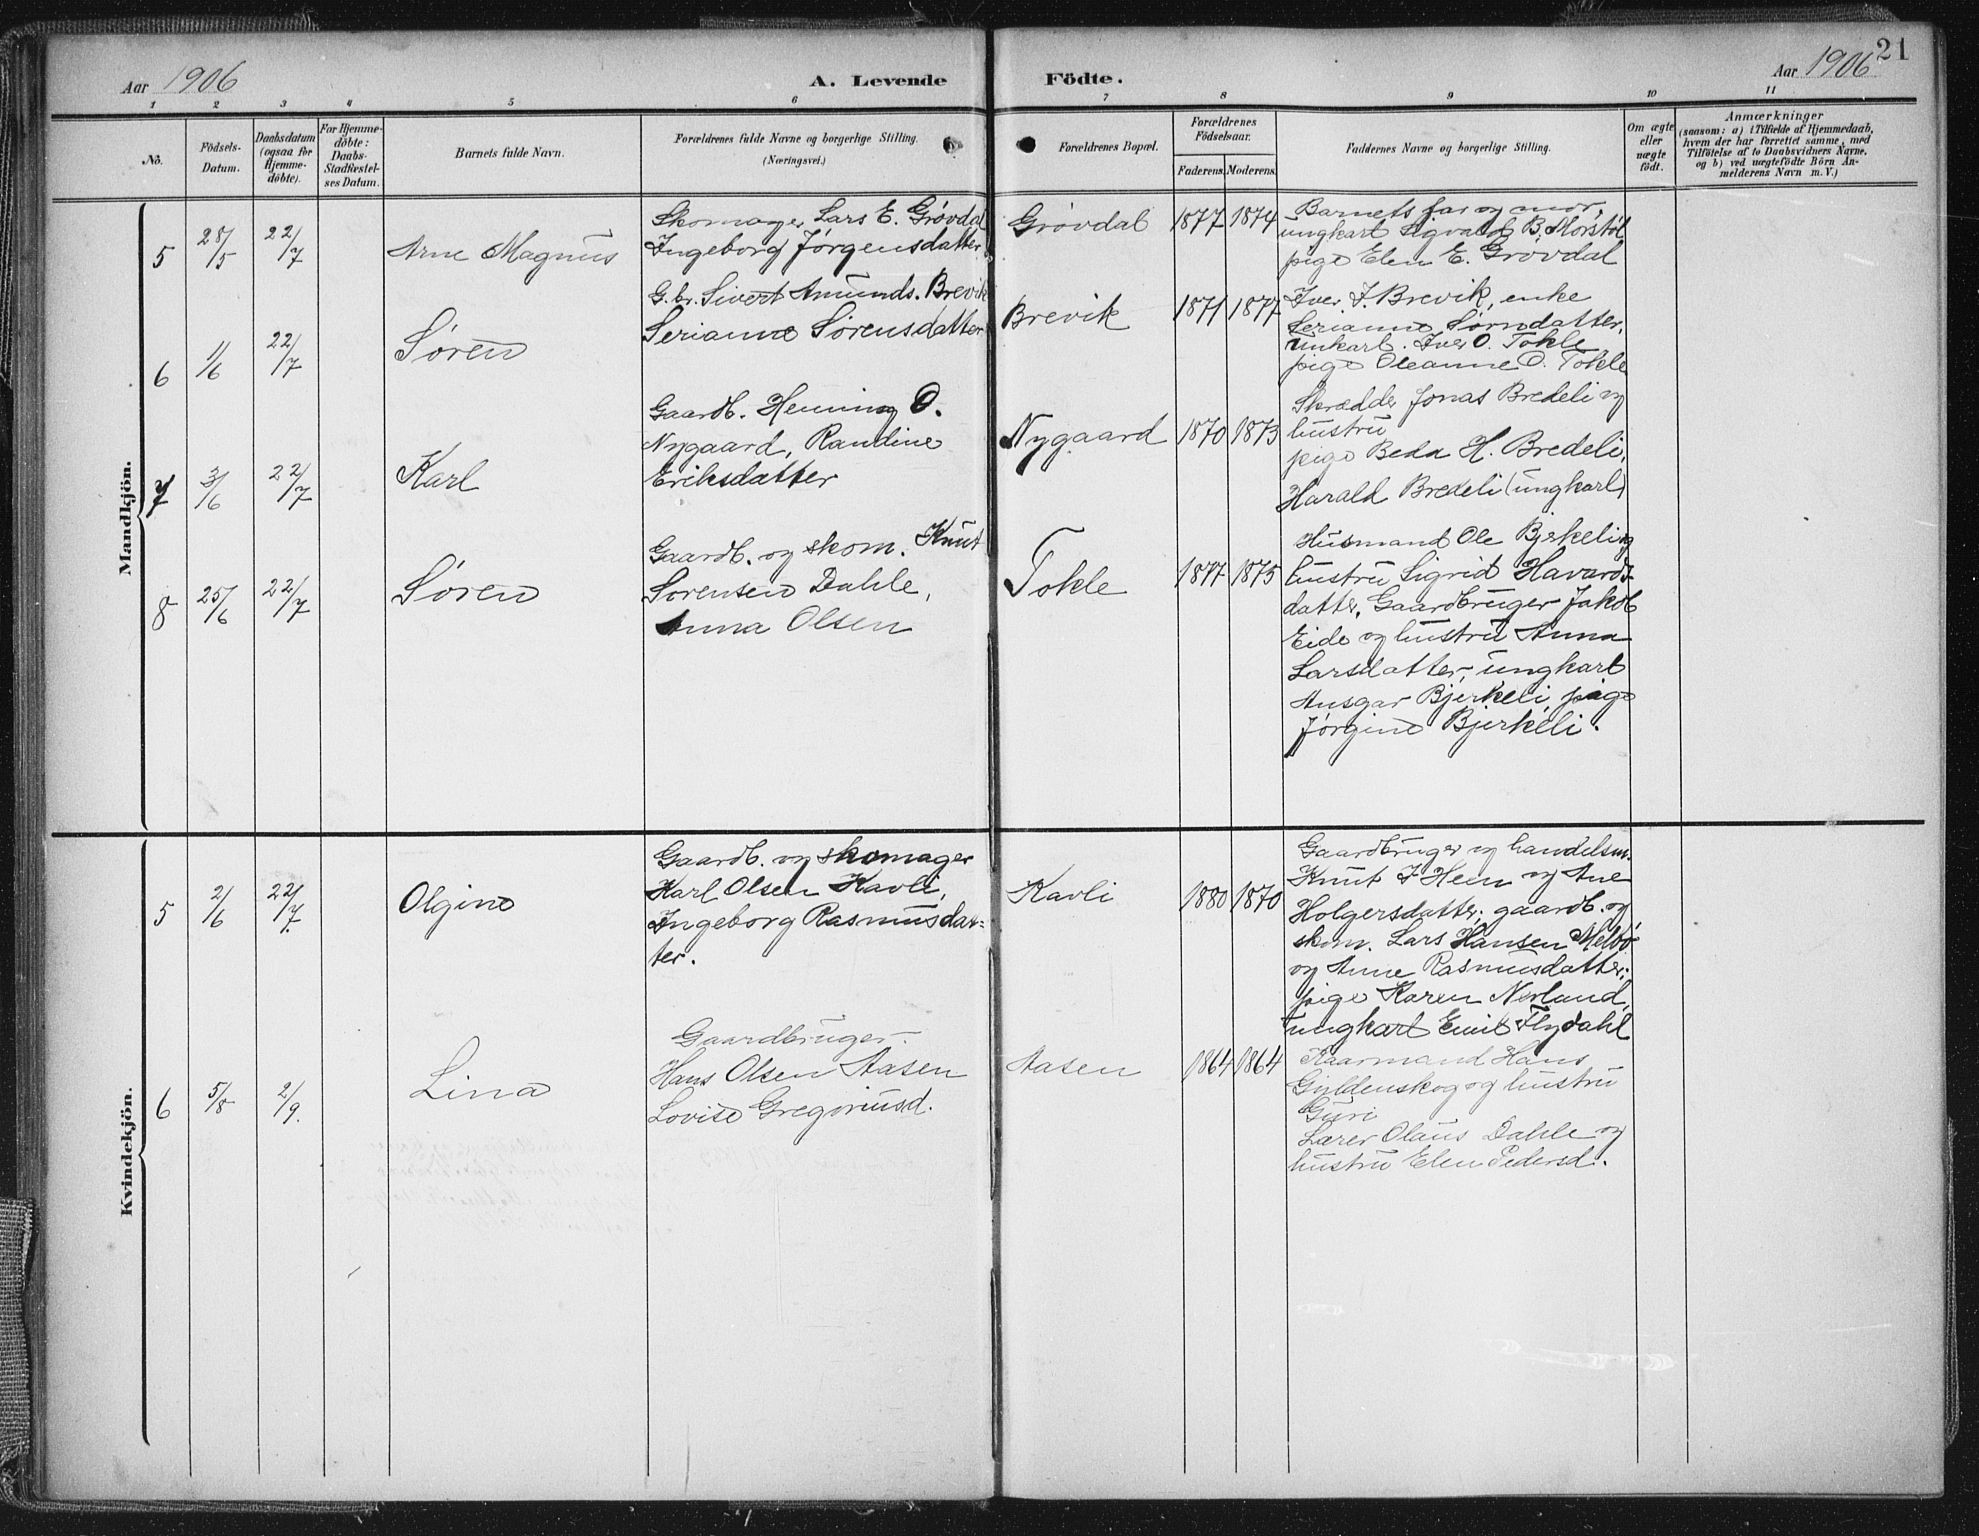 Aar 1906
A. Levende
Födte.
Aar 1906
21
1 2 3 4 5 6 7 8 9 10 11
No.
Födsels-
Datum.
Daabsdatum
(ogsaa for
Hjemme-
döbte).
For Hjemme-
döbte:
Daabs-
Stadfæstel-
ses Datum.
Barnets fulde Navn.
Forældrenes fulde Navne og borgerlige Stilling.
(Næringsvei.)
Forældrenes Bopæl.
Forældrenes
Födselsaar.
Faderens. Moderens.
Faddernes Navne og borgerlige Stilling.
Om ægte
eller
uægte
födt.
Anmærkninger
(saasom: a) i Tilfælde af Hjemmedaab,
hvem der har forrettet samme, med
Tilföielse af to Daabsvidners Navne,
og b) ved uægtefödte Börn An-
melderens Navn m.V.)
Mandkjön.
5 28/5 22/7 Arne Magnus
Skomager Lars E. Grøvdal
Ingeborg Jørgensdatter
Grøvdal 1877 1874
Barnets far og mor,
ungkarl Sigvald B. Morstøl
pige Elen E. Grøvdal
6 1/6 22/7 Søren
G.br. Sivert Amunds. Brevik
Serianne Sørensdatter
Brevik 1871 1877
Iver J. Brevik, enke
Serianne Sørndatter,
unkarl. Iver O. Tokle
pige Oleanne O. Tokle
7 3/6 22/7 Karl
Gaardb. Henning O.
Nygaard, Randine
Eriksdatter
Nygaard 1870 1873
Skrædder Jonas Bredeli og
hustru
pige Beda H. Bredeli,
Harald Bredeli (ungkarl)
8 25/6 22/7 Søren
Gaardb. og skom. Knut
Sørensen Dahle,
Anna Olsen
Tokle 1877 1875
Husmand Ole Bjerkeli og
hustru Sigrid Havards-
datter, Gaardbruger Jakob
Eide og hustru Anna
Larsdatter, ungkarl
Ansgar Bjerkeli, pige
Jørgine Bjerkeli.
Kvindekjön.
5 2/6 22/7. Olgine
Gaardb. og skomager
Karl Olsen Kavli,
Ingeborg Rasmusdat=
ter.
Kavli 1880 1870
Gaardbruger og handelsm.
Knut I Heen og Ane
Holgersdatter; gaardb. og
skom. Lars Hansen Melbø
og Anne Rasmusdatter;
pige Karen Nerland,
ungkarl Emil Flydahl
6 5/8 2/9. Lina
Gaardbruger
Hans Olsen Aasen
Lovise Gregoriusd.
Aasen 1864 1864
Kaarmand Hans
Gyldenskog og hustru
Guri
Lærer Olaus Dahle og
hustru Elen Pedersd.